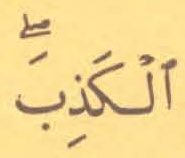 ٱلۡكَذِبَۖ